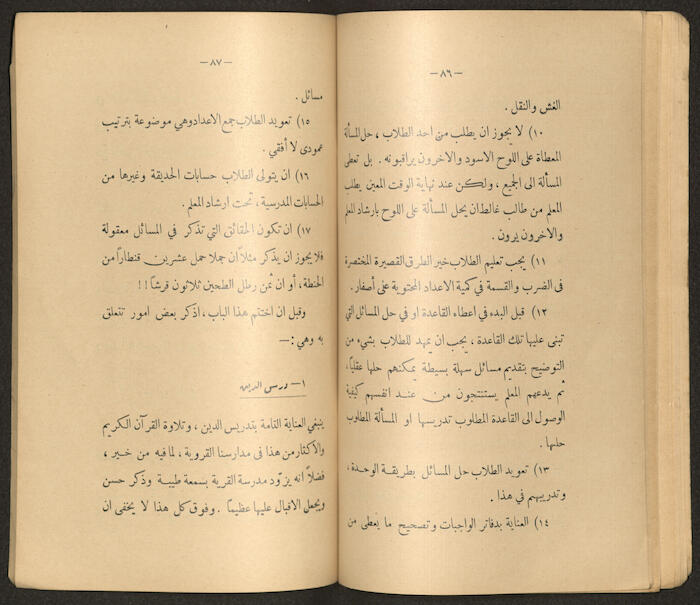 — ٨٦ —
الغش والنقل .
١٠) لا يجوز ان يطلب من احد الطلاب ، حل المسألة
المعطاة على اللوح الاسود والاخرون يراقبونه . بل تعطى
المسألة الى الجميع ، ولكن عند نهاية الوقت المعين يطلب
المعلم من طالب غالط ان يحل المسألة على اللوح بارشاد المعلم
والاخرون يرون .
١١) يجب تعليم الطلاب خير الطرق القصيرة المختصرة
فى الضرب والقسمة في كمية الاعداد المحتوية على أصفار .
١٢) قبل البدء في اعطاء القاعدة او في حل المسائل التي
تبنى عليها تلك القاعدة ، يجب ان يمهد للطلاب بشيء من
التوضيح بتقديم مسائل سهلة بسيطة يمكنهم حلها عقلياً ،
ثم يدعهم المعلم يستنتجون من عند انفسهم كيفية
الوصول الى القاعدة المطلوب تدريسها او المسألة المطلوب
حلها .
١٣) تعويد الطلاب حل المسائل بطريقة الوحدة ،
وتدريبهم في هذا .
١٤) العناية بدفاتر الواجبات وتصحيح ما يعطى من
— ٨٧ —
مسائل .
١٥) تعويد الطلاب جمع الاعداد وهي موضوعة بترتيب
عمودى لا أفقي .
١٦) ان يتولى الطلاب حسابات الحديقة وغيرها من
الحسابات المدرسية ، تحت ارشاد المعلم .
١٧) ان تكون الحقائق التي تذكر في المسائل معقولة
فلا يجوز ان يذكر مثلاً ان جملا حمل عشرين قنطاراً من
الحنطة ، أو ان ثمن رطل الطحين ثلاثون قرشاً !!
وقبل ان اختتم هذا الباب ، اذكر بعض امور تتعلق
به وهي : —
١ — درس الدين
ينبغي العناية التامة بتدريس الدين ، وتلاوة القرآن الكريم
والاكثار من هذا فى مدارسنا القروية ، لما فيه من خير ،
فضلاً انه يزوّد مدرسة القرية بسمعة طيبة وذكر حسن
ويجعل الاقبال عليها عظيماً . وفوق كل هذا لا يخفى ان